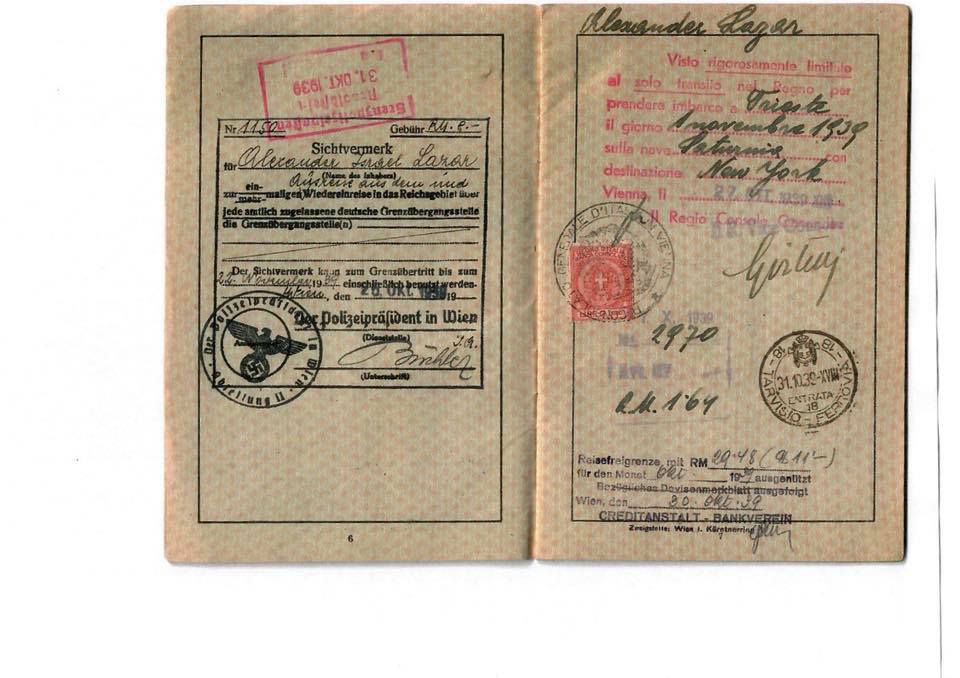 31. OKT. 1939
Nr. 1150 Gebühr RM. 8.-
Sichtvermerk
für Alexander Israel Lazar
(Name des Inhabers)
Ausreise aus dem und
zur ein-
mehr-maligen Wiedereinreise in das Reichsgebiet über
jede amtlich zugelassene deutsche Grenzübergangsstelle
die Grenzübergangsstelle(n)
Der Sichtvermerk kann zum Grenzübertritt bis zum
22. November 1939 einschließlich benutzt werden.
Wien, den 20. OKT. 1939 19
Der Polizeipräsident in Wien
(Dienststelle)
J.A.
Bühler
(Unterschrift)
Der Polizeipräsident in Wien
Abteilung II
6
Alexander Lazar
Visto rigorosamente limitato
al solo transito nel Regno per
prendere imbarco a Trieste
il giorno 1 novembre 1939
sulla nave Saturnia con
destinazione New York
Vienna, li 27. 1939 XVII
Il Regio Console Generale
GENERALE D'ITALIA VIENNA
X. 1939
2970
R.M. 1.64
18 - TARVISIO - FERROVIA - 18
31.10.39-XVIII
ENTRATA
18
Reisefreigrenze mit RM 29.48
für den Monat Okt 1939 ausgenützt
Bezügliches Devisenmerkblatt ausgefolgt
Wien, den 30. Okt. 39
CREDITANSTALT - BANKVEREIN
Zweigstelle: Wien I. Kärntnerring